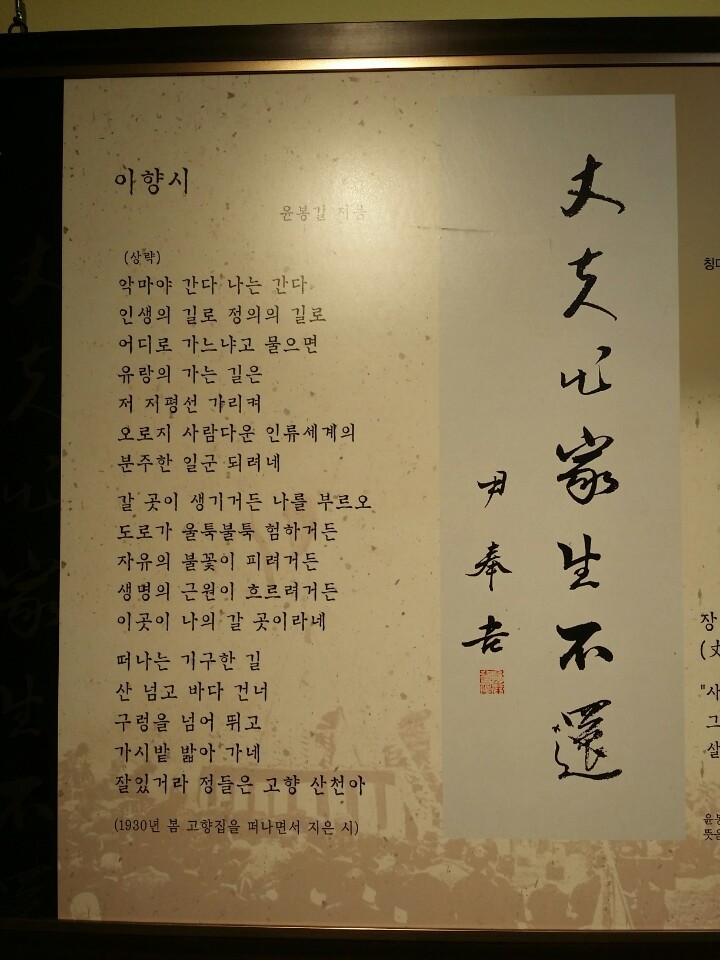 아향시
윤봉길 지음
(상략)
악마야 간다 나는 간다
인생의 길로 정의의 길로
어디로 가느냐고 물으면
유랑의 가는 길은
저 지평선 가리켜
오로지 사람다운 인류세계의
분주한 일군 되려네
갈 곳이 생기거든 나를 부르오
도로가 울툭불툭 험하거든
자유의 불꽃이 피려거든
생명의 근원이 흐르려거든
이곳이 나의 갈 곳이라네
떠나는 기구한 길
산 넘고 바다 건너
구렁을 넘어 뛰고
가시밭 밟아 가네
잘있거라 정들은 고향 산천아
(1930년 봄 고향집을 떠나면서 지은 시)
丈夫出家生不還
尹奉吉
장
(丈
"사
그
살